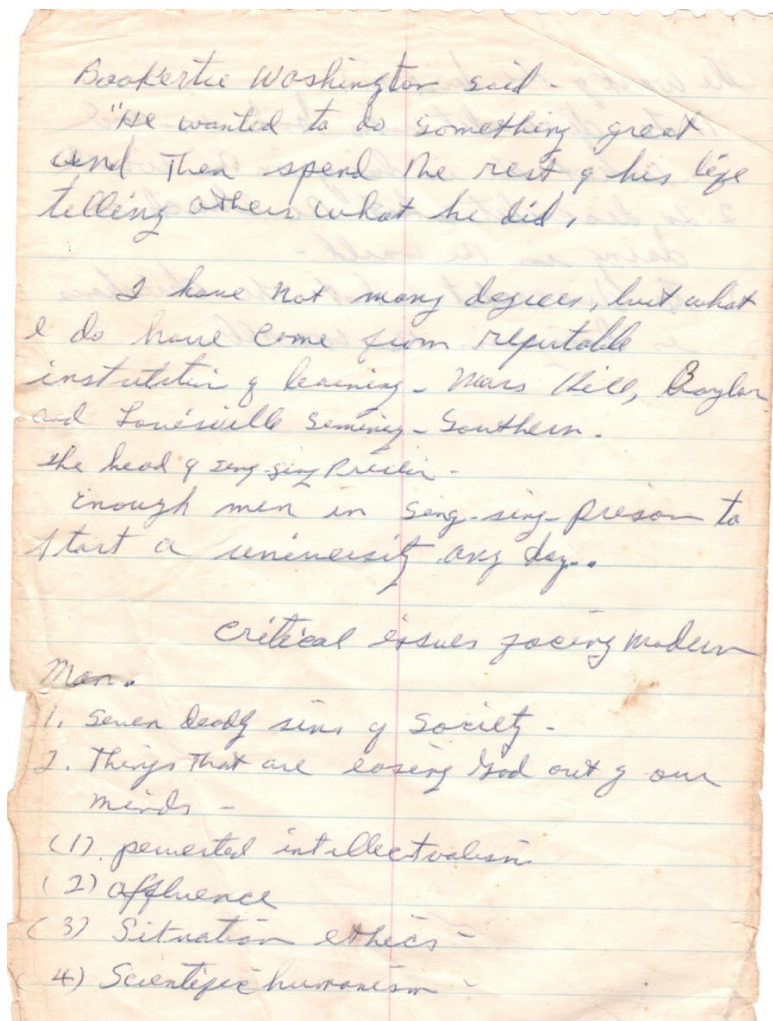 Bookertee Washington said -
"He wanted to do something great
and then spend the rest of his life
telling others what he did.
I have not many degrees, but what
I do have come from reputable
institution of learning - Mars Hill, Baylor
and Louisville Seminary - Southern.
the head of Sing-Sing Prison -
Enough men in Sing-sing-prison to
start a university any day..
Critical issues facing modern
Man.
1. Seven deadly sins of Society -
2. Things that are easing God out of our
minds -
(1). perverted intellectualism
(2) affluence
(3) Situation ethics -
(4) Scientific humanism -